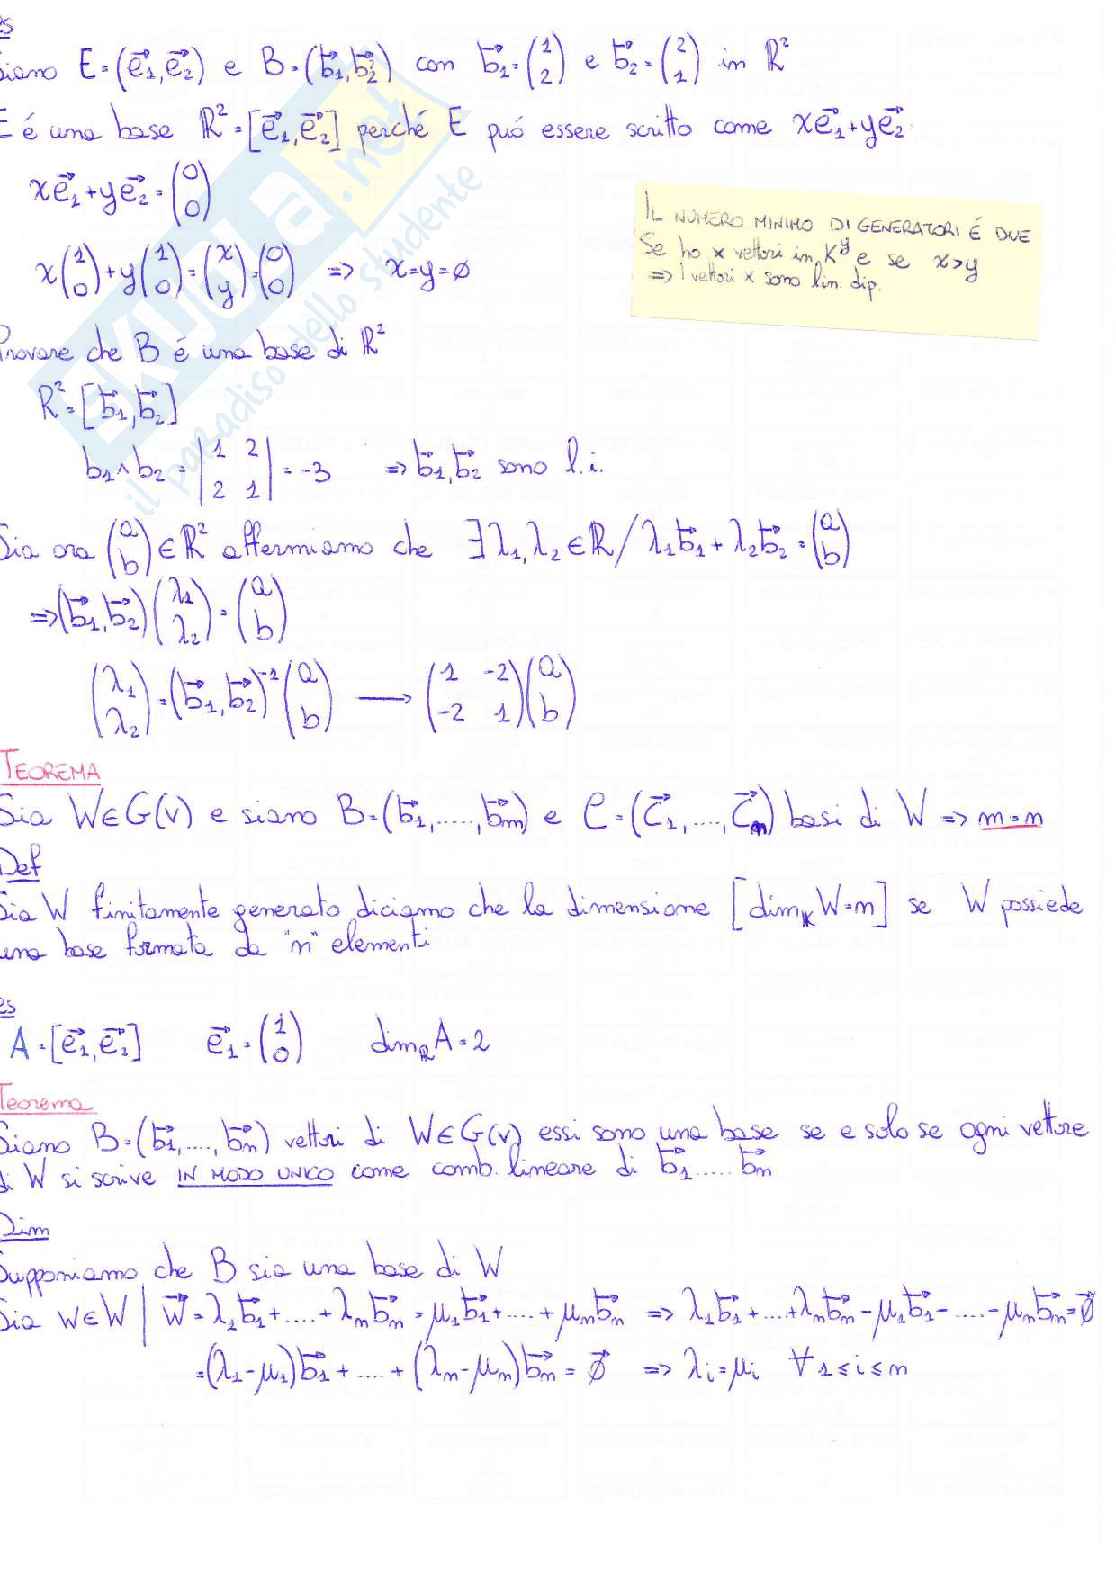 es
Siano E=(e⃗1,e⃗2) e B=(b⃗1,b⃗2) con b⃗1=(1 2) e b⃗2=(2 1) in R²
E é una base R²=[e⃗1,e⃗2] perché E puó essere scritto come xe⃗1+ye⃗2
xe⃗1+ye⃗2=(0 0)
x(1 0)+y(1 0)=(x y)=(0 0) => x=y=ø
IL NUMERO MINIMO DI GENERATORI É DUE
Se ho x vettori in K^y e se x>y
=> I vettori x sono lin. dip.
Provare che B é una base di R²
R²=[b⃗1,b⃗2]
b1∧b2=|1 2 2 1|=-3 => b⃗1,b⃗2 sono l.i.
Sia ora (a b)∈R² affermiamo che ∃λ1,λ2∈R/λ1b⃗1+λ2b⃗2=(a b)
=>(b⃗1,b⃗2)(λ1 λ2)=(a b)
(λ1 λ2)=(b⃗1,b⃗2)⁻¹(a b) → (1 -2 -2 1)(a b)
TEOREMA
Sia W∈G(v) e siano B=(b⃗1,.....,b⃗m) e C=(c⃗1,....,c⃗n) basi di W => m=n
Def
Sia W finitamente generato diciamo che la dimensione [dimK W=n] se W possiede
una base formata da "n" elementi
es
A=[e⃗1,e⃗2] e⃗1=(1 0) dimR A=2
Teorema
Siano B=(b⃗1,....,b⃗n) vettori di W∈G(v) essi sono una base se e solo se ogni vettore
di W si scrive IN MODO UNICO come comb. lineare di b⃗1.....b⃗n
Dim
Supponiamo che B sia una base di W
Sia w∈W | w⃗=λ1b⃗1+....+λnb⃗n=μ1b⃗1+....+μnb⃗n => λ1b⃗1+...+λnb⃗n-μ1b⃗1-....-μnb⃗n=ø⃗
=(λ1-μ1)b⃗1+....+(λn-μn)b⃗n=ø⃗ => λi=μi ∀1≤i≤n
skuola.net
il paradiso dello studente